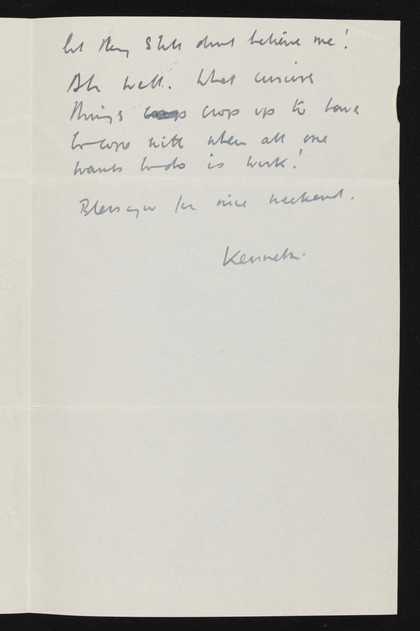 but they still dont believe me!
Ah well. What curious
things crop up to have
to cope with when all one
wants to do is work!
Bless you for nice weekend.
Kenneth.